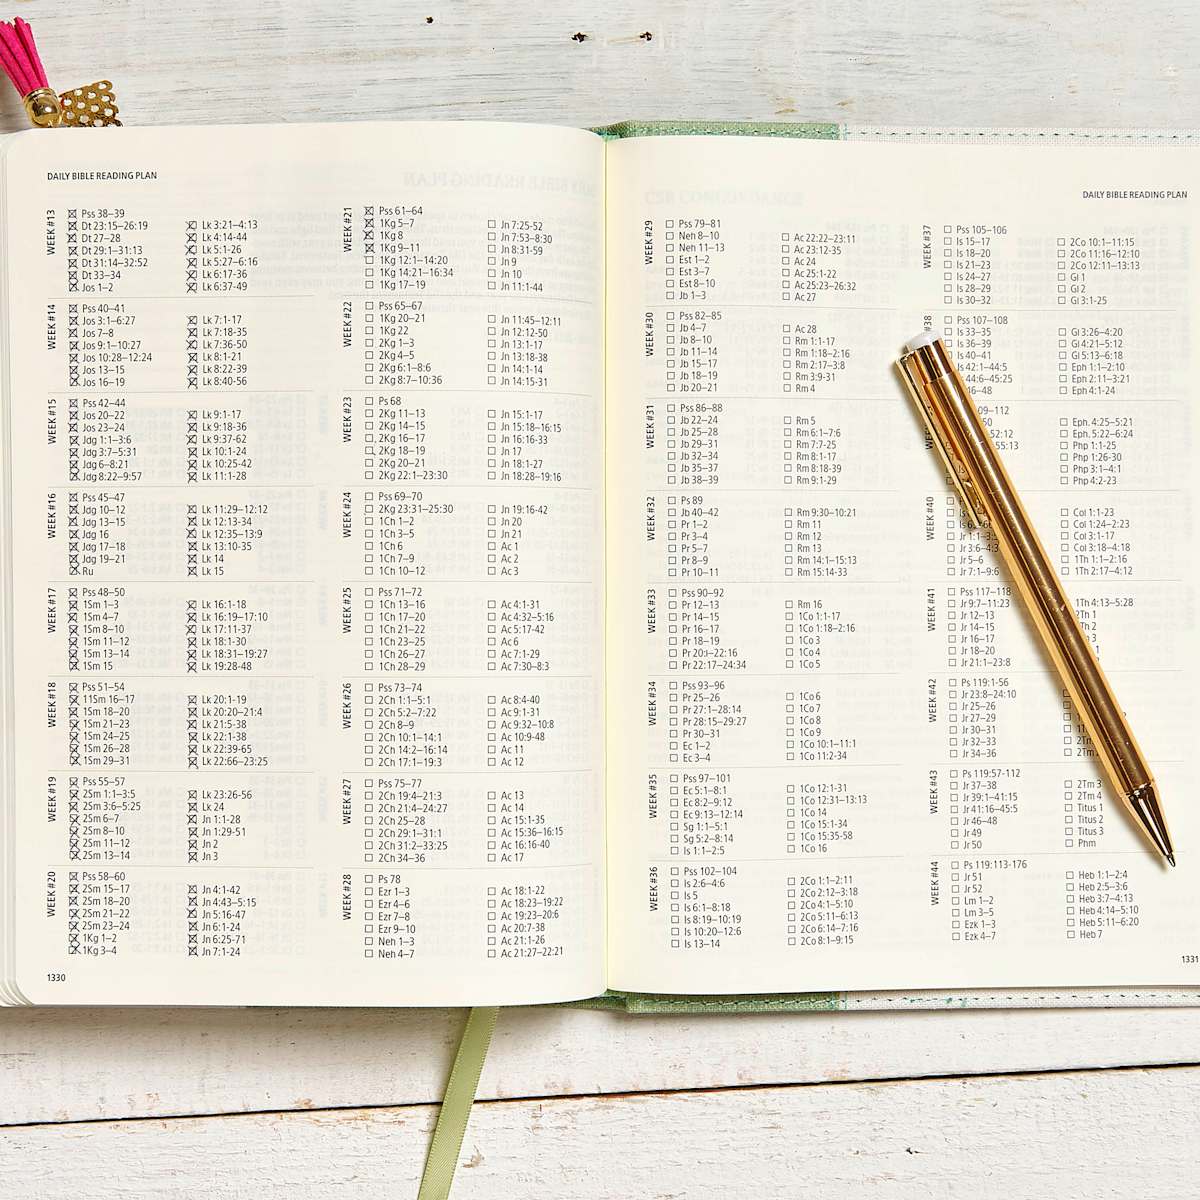 DAILY BIBLE READING PLAN
WEEK #13
Pss 38–39
Dt 23:15–26:19 Lk 3:21-4:13
Dt 27–28 Lk 4:14-44
Dt 29:1–31:13 Lk 5:1-26
Dt 31:14–32:52 Lk 5:27–6:16
Dt 33–34 Lk 6:17-36
Jos 1–2 Lk 6:37-49
WEEK #14
Pss 40–41
Jos 3:1–6:27 Lk 7:1-17
Jos 7–8 Lk 7:18-35
Jos 9:1–10:27 Lk 7:36-50
Jos 10:28–12:24 Lk 8:1-21
Jos 13–15 Lk 8:22-39
Jos 16–19 Lk 8:40-56
WEEK #15
Pss 42–44
Jos 20–22 Lk 9:1-17
Jos 23–24 Lk 9:18-36
Jdg 1:1–3:6 Lk 9:37-62
Jdg 3:7–5:31 Lk 10:1-24
Jdg 6–8:21 Lk 10:25-42
Jdg 8:22–9:57 Lk 11:1-28
WEEK #16
Pss 45–47
Jdg 10–12 Lk 11:29–12:12
Jdg 13–15 Lk 12:13-34
Jdg 16 Lk 12:35–13:9
Jdg 17–18 Lk 13:10-35
Jdg 19–21 Lk 14
Ru Lk 15
WEEK #17
Pss 48–50
1Sm 1–3 Lk 16:1-18
1Sm 4–7 Lk 16:19–17:10
1Sm 8–10 Lk 17:11-37
1Sm 11–12 Lk 18:1-30
1Sm 13–14 Lk 18:31–19:27
1Sm 15 Lk 19:28-48
WEEK #18
Pss 51–54
11Sm 16–17 Lk 20:1-19
1Sm 18–20 Lk 20:20–21:4
1Sm 21–23 Lk 21:5-38
1Sm 24–25 Lk 22:1-38
1Sm 26–28 Lk 22:39-65
1Sm 29–31 Lk 22:66–23:25
WEEK #19
Pss 55–57
2Sm 1:1–3:5 Lk 23:26-56
2Sm 3:6–5:25 Lk 24
2Sm 6–7 Jn 1:1-28
2Sm 8–10 Jn 1:29-51
2Sm 11–12 Jn 2
2Sm 13–14 Jn 3
WEEK #20
Pss 58–60
2Sm 15–17 Jn 4:1-42
2Sm 18–20 Jn 4:43–5:15
2Sm 21–22 Jn 5:16-47
2Sm 23–24 Jn 6:1-24
1Kg 1–2 Jn 6:25-71
1Kg 3–4 Jn 7:1-24
1330
WEEK #21
Pss 61–64
1Kg 5–7 Jn 7:25-52
1Kg 8 Jn 7:53–8:30
1Kg 9–11 Jn 8:31-59
1Kg 12:1–14:20 Jn 9
1Kg 14:21–16:34 Jn 10
1Kg 17–19 Jn 11:1-44
WEEK #22
Pss 65–67
1Kg 20–21 Jn 11:45–12:11
1Kg 22 Jn 12:12-50
2Kg 1–3 Jn 13:1-17
2Kg 4–5 Jn 13:18-38
2Kg 6:1–8:6 Jn 14:1-14
2Kg 8:7–10:36 Jn 14:15-31
WEEK #23
Ps 68
2Kg 11–13 Jn 15:1-17
2Kg 14–15 Jn 15:18–16:15
2Kg 16–17 Jn 16:16-33
2Kg 18–19 Jn 17
2Kg 20–21 Jn 18:1-27
2Kg 22:1–23:30 Jn 18:28–19:16
WEEK #24
Pss 69–70
2Kg 23:31–25:30 Jn 19:16-42
1Ch 1–2 Jn 20
1Ch 3–5 Jn 21
1Ch 6 Ac 1
1Ch 7–9 Ac 2
1Ch 10–12 Ac 3
WEEK #25
Pss 71–72
1Ch 13–16 Ac 4:1-31
1Ch 17–20 Ac 4:32–5:16
1Ch 21–22 Ac 5:17-42
1Ch 23–25 Ac 6
1Ch 26–27 Ac 7:1-29
1Ch 28–29 Ac 7:30–8:3
WEEK #26
Pss 73–74
2Ch 1:1–5:1 Ac 8:4-40
2Ch 5:2–7:22 Ac 9:1-31
2Ch 8–9 Ac 9:32–10:8
2Ch 10:1–14:1 Ac 10:9-48
2Ch 14:2–16:14 Ac 11
2Ch 17:1–19:3 Ac 12
WEEK #27
Pss 75–77
2Ch 19:4–21:3 Ac 13
2Ch 21:4–24:27 Ac 14
2Ch 25–28 Ac 15:1-35
2Ch 29:1–31:1 Ac 15:36–16:15
2Ch 31:2–33:25 Ac 16:16-40
2Ch 34–36 Ac 17
WEEK #28
Ps 78
Ezr 1–3 Ac 18:1-22
Ezr 4–6 Ac 18:23–19:22
Ezr 7–8 Ac 19:23–20:6
Ezr 9–10 Ac 20:7-38
Neh 1–3 Ac 21:1-26
Neh 4–7 Ac 21:27–22:21
DAILY BIBLE READING PLAN
WEEK #29
Pss 79–81
Neh 8–10 Ac 22:22–23:11
Neh 11–13 Ac 23:12-35
Est 1–2 Ac 24
Est 3–7 Ac 25:1-22
Est 8–10 Ac 25:23–26:32
Jb 1–3 Ac 27
WEEK #30
Pss 82–85
Jb 4–7 Ac 28
Jb 8–10 Rm 1:1-17
Jb 11–14 Rm 1:18–2:16
Jb 15–17 Rm 2:17–3:8
Jb 18–19 Rm 3:9-31
Jb 20–21 Rm 4
WEEK #31
Pss 86–88
Jb 22–24 Rm 5
Jb 25–28 Rm 6:1–7:6
Jb 29–31 Rm 7:7-25
Jb 32–34 Rm 8:1-17
Jb 35–37 Rm 8:18-39
Jb 38–39 Rm 9:1-29
WEEK #32
Ps 89
Jb 40–42 Rm 9:30–10:21
Pr 1–2 Rm 11
Pr 3–4 Rm 12
Pr 5–7 Rm 13
Pr 8–9 Rm 14:1–15:13
Pr 10–11 Rm 15:14-33
WEEK #33
Pss 90–92
Pr 12–13 Rm 16
Pr 14–15 1Co 1:1-17
Pr 16–17 1Co 1:18–2:16
Pr 18–19 1Co 3
Pr 20:–22:16 1Co 4
Pr 22:17–24:34 1Co 5
WEEK #34
Pss 93–96
Pr 25–26 1Co 6
Pr 27:1–28:14 1Co 7
Pr 28:15–29:27 1Co 8
Pr 30–31 1Co 9
Ec 1–2 1Co 10:1–11:1
Ec 3–4 1Co 11:2-34
WEEK #35
Pss 97–101
Ec 5:1–8:1 1Co 12:1-31
Ec 8:2–9:12 1Co 12:31–13:13
Ec 9:13–12:14 1Co 14
Sg 1:1–5:1 1Co 15:1-34
Sg 5:2–8:14 1Co 15:35-58
Is 1:1–2:5 1Co 16
WEEK #36
Pss 102–104
Is 2:6–4:6 2Co 1:1–2:11
Is 5 2Co 2:12–3:18
Is 6:1–8:18 2Co 4:1–5:10
Is 8:19–10:19 2Co 5:11–6:13
Is 10:20–12:6 2Co 6:14–7:16
Is 13–14 2Co 8:1–9:15
WEEK #37
Pss 105–106
Is 15–17 2Co 10:1–11:15
Is 18–20 2Co 11:16–12:10
Is 21–23 2Co 12:11–13:13
Is 24–27 Gl 1
Is 28–29 Gl 2
Is 30–32 Gl 3:1-25
#38
Pss 107–108
Is 33–35 Gl 3:26–4:20
Is 36–39 Gl 4:21–5:12
Is 40–41 Gl 5:13–6:18
Is 42:1–44:5 Eph 1:1–2:10
44:6–45:25 Eph 2:11–3:21
46–48 Eph 4:1-24
09–112
50 Eph. 4:25–5:21
52:12 Eph. 5:22–6:24
55:13 Php 1:1-25
Php 1:26-30
Php 3:1–4:1
Is Php 4:2-23
WEEK #40
Col 1:1-23
Is Col 1:24–2:23
Jr 1:1–3: Col 3:1-17
Jr 3:6–4:3 Col 3:18–4:18
Jr 5–6 1Th 1:1–2:16
Jr 7:1–9:6 2Th 2:17–4:12
WEEK #41
Pss 117–118
Jr 9:7–11:23 1Th 4:13–5:28
Jr 12–13 Th 1
Jr 14–15 2
Jr 16–17 3
Jr 18–20 1
Jr 21:1–23:8
WEEK #42
Ps 119:1-56
Jr 23:8–24:10
Jr 25–26
Jr 27–29
Jr 30–31
Jr 32–33 2Tm
Jr 34–36
WEEK #43
Ps 119:57-112
Jr 37–38 2Tm 3
Jr 39:1–41:15 2Tm 4
Jr 41:16–45:5 Titus 1
Jr 46–48 Titus 2
Jr 49 Titus 3
Jr 50 Phm
WEEK #44
Ps 119:113-176
Jr 51 Heb 1:1–2:4
Jr 52 Heb 2:5–3:6
Lm 1–2 Heb 3:7–4:13
Lm 3–5 Heb 4:14–5:10
Ezk 1–3 Heb 5:11–6:20
Ezk 4–7 Heb 7
1331